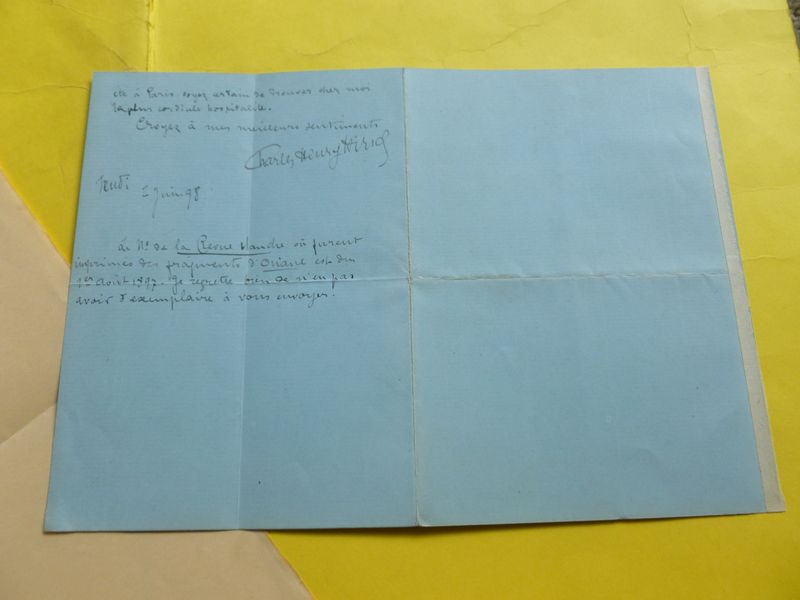 été à Paris soyez certain de trouver chez moi
la plus cordiale hospitalité.
Croyez à mes meilleurs sentiments
Charles Henry Hirsch
Jeudi
2 Juin 98
Le N° de la Revue blanche où furent
imprimés des fragments d'Oriane est du
1er Août 1897. Je regrette bien de n'en pas
avoir d'exemplaire à vous envoyer.